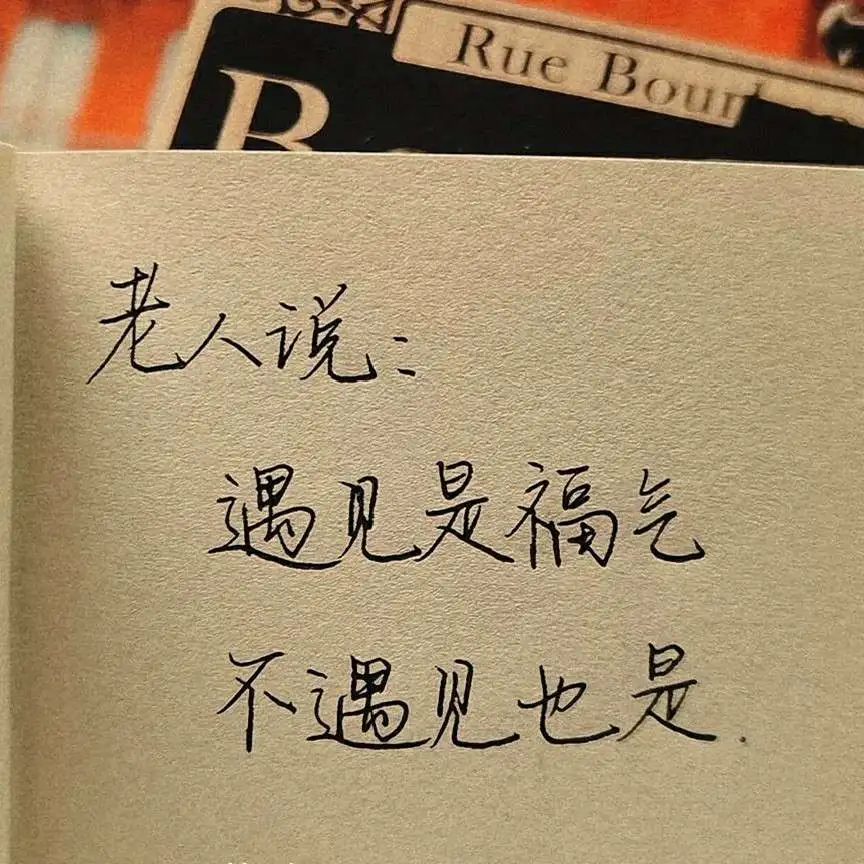 Rue Bour
B
老人说：
遇见是福气
不遇见也是.